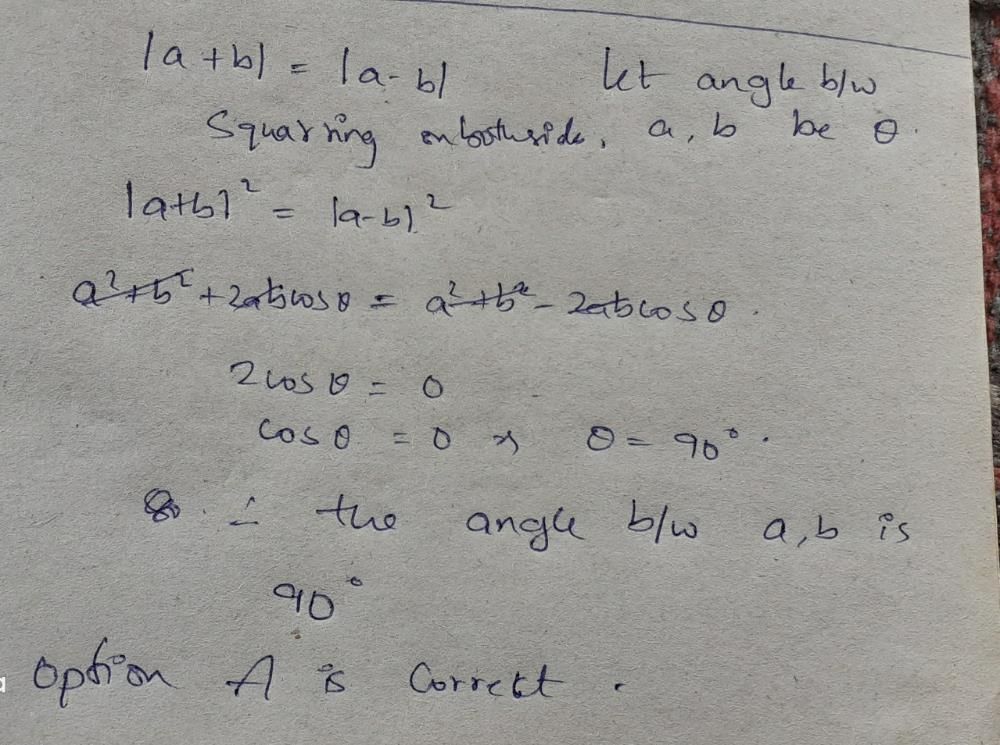 |a+b| = |a-b| Let angle b/w
Squarring on bothside, a, b be θ.
|a+b|² = |a-b|²
a²+b²+2abcosθ = a²+b²-2abcosθ.
2cosθ = 0
cosθ = 0 θ = 90°.
∴ the angle b/w a,b is
90°
option A is Correct.